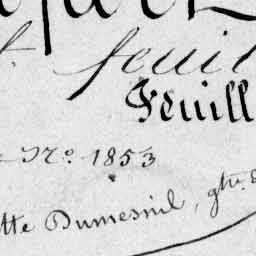 feuil
Feuill
No. 1853
tte Dumesnil, gtte.